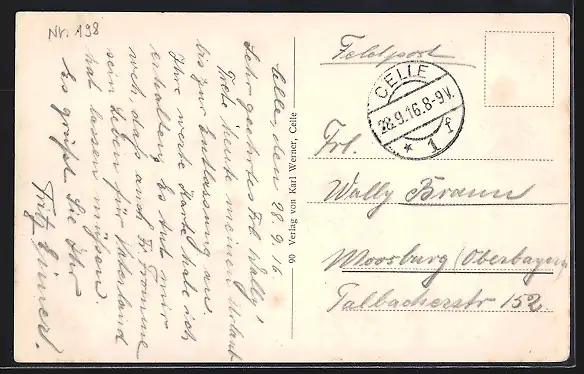 Nr. 198
Celle, den 28.9.16.
Sehr geehrtes Frl. Wally!
Trete heute meinen Urlaub
bis zur Entlassung an.
Ihre werte Karte hab ich
erhalten. Es tut mir
weh, daß auch Fr. Fromme
sein Leben für Vaterland
hat lassen müssen.
Es grüßt Sie Ihr
Fritz
90 Verlag von Karl Werner, Celle
Feldpost
CELLE
28.9.16.8-9V.
* 1 f
Frl.
Wally Braun
Moosburg (Oberbayern)
Talbacherstr 152